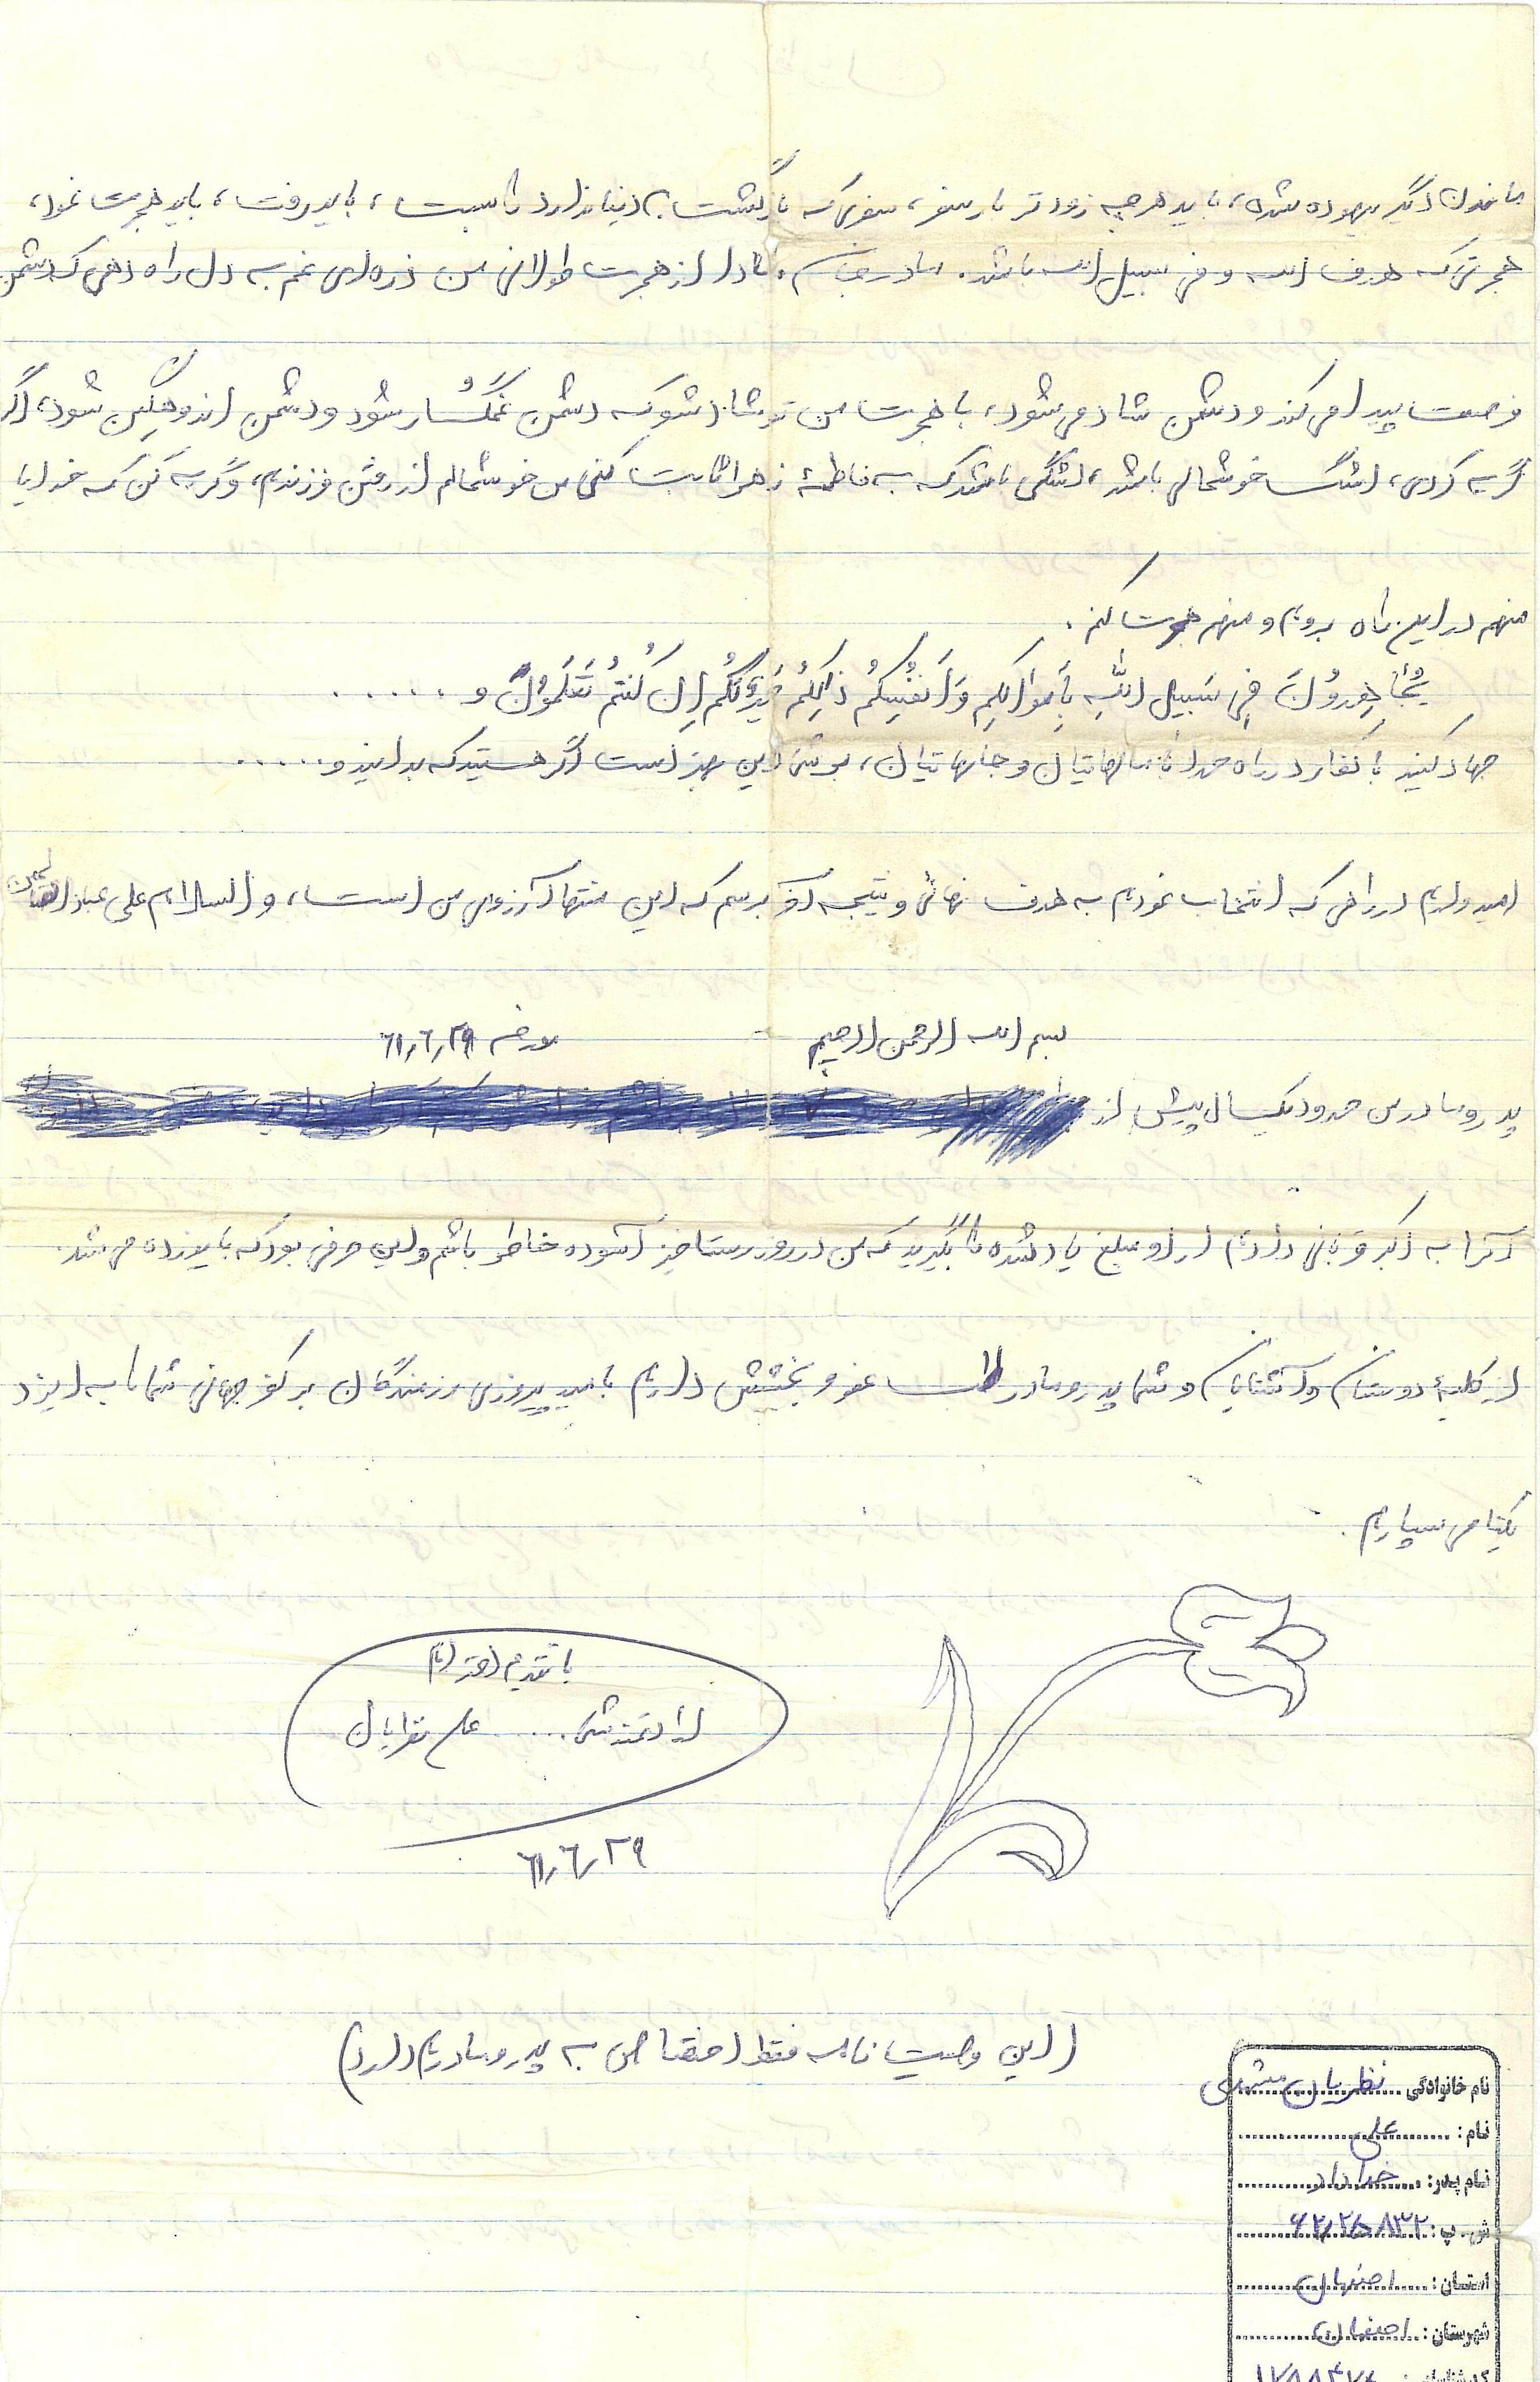 ماندن دیگر بیهوده شده، باید هرچه زودتر بار سفر، سفری که بازگشت به دنیا ندارد را بست، باید رفت، باید هجرت نمود،
هجرتی که هدف الله و فی سبیل الله باشد. مادر جان، مبادا از هجرت طولانی من ذره‌ای غم به دل راه دهی که دشمن
فرصت پیدا می کند و دشمن شاد می شود، با هجرت من تو شاد شو که دشمن غمگسار شود و دشمن اندوهگین شود، اگر
گریه کردی، اشگ خوشحالی باشد، اشگی باشد که به فاطمهٔ زهرا ثابت کنی من خوشحالم از رفتن فرزندم، و گریه کن که خدایا
منهم در این راه بروم و منهم هجرت کنم.
تُجٰاهِدوُنَ فِی سَبیلِ اللّٰهِ بِأَموٰالِکُم وَ اَنفُسِکُم ذٰلِکُم خَیرٌ لَکُم اِن کُنتُم تَعلَموُنَ و .....
جهاد کنید با کفار در راه خدا با مالهایتان و جانهایتان، بر شما این بهتر است اگر هستید که بدانید و.....
امیدوارم در راهی که انتخاب نمودم به هدف نهائی و نتیجه آن برسم که این منتها آرزوی من است، و السلام علی عباد الله الصالحین
بسم الله الرحمن الرحیم - مورخه ۶۱٫۶٫۲۹
پدر و مادر من حدود یکسال پیش از
آنرا به اکبر قربانی دادم از او مبلغ یاد شده را بگیرید که من در روز رستاخیز آسوده خاطر باشم و این حرفی بود که باید زده می شد.
از کلیهٔ دوستان و آشنایان و شما پدر و مادر طلب عفو و بخشش دارم با امید پیروزی رزمندگان بر کفر جهانی شما را به ایزد
یکتا می سپارم.
با تقدیم احترام
ارادتمند شما .... علی نظریان
۶۱٫۶٫۲۹
(این وصیت نامه فقط اختصاص به پدر و مادرم دارد)
نام خانوادگی نظریان مشهدی
نام: علی
نام پدر: خداداد
ش.پ:
استان: اصفهان
شهرستان: اصفهان